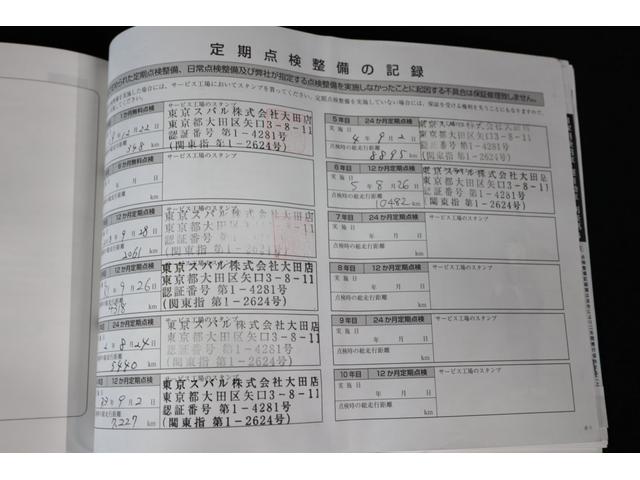 定期点検整備の記録
られた定期点検整備、日常点検整備及び弊社が指定する点検整備を実施しなかったことに起因する不具合は保証修理致しません。
1か月無料点検
サービス工場のスタンプ
月22日
348 km
東京スバル株式会社大田店
東京都大田区矢口3-8-11
認証番号 第1-4281号
(関東指 第1-2624号)
6か月無料点検
サービス工場のスタンプ
年 月 日
km
12か月定期点検
サービス工場のスタンプ
年9月28日
2061 km
東京スバル株式会社大田店
東京都大田区矢口3-8-11
認証番号 第1-4281号
(関東指 第1-2624号)
12か月定期点検
年9月26日
km
東京スバル株式会社大田店
東京都大田区矢口3-8-11
認証番号 第1-4281号
(関東指 第1-2624号)
24か月定期点検
2年8月24日
5440 km
東京スバル株式会社大田店
東京都大田区矢口3-8-11
認証番号 第1-4281号
(関東指 第1-2624号)
12か月定期点検
年9月2日
7,227 km
東京スバル株式会社大田店
東京都大田区矢口3-8-11
認証番号 第1-4281号
(関東指 第1-2624号)
5年目 24か月定期点検
実施日
4年9月2日
点検時の総走行距離
8895 km
東京都大田区矢口3-8-11
認証番号 第1-4281号
(関東指 第1-2624号)
6年目 12か月定期点検
サービス工場のスタンプ
実施日
5年8月26日
点検時の総走行距離
10482 km
東京スバル株式会社大田店
東京都大田区矢口3-8-11
認証番号 第1-4281号
(関東指 第1-2624号)
7年目 24か月定期点検
サービス工場のスタンプ
実施日
年 月 日
点検時の総走行距離
km
8年目 12か月定期点検
サービス工場のスタンプ
実施日
年 月 日
点検時の総走行距離
km
9年目 24か月定期点検
サービス工場のスタンプ
実施日
年 月 日
点検時の総走行距離
km
10年目 12か月定期点検
サービス工場のスタンプ
実施日
年 月 日
点検時の総走行距離
km